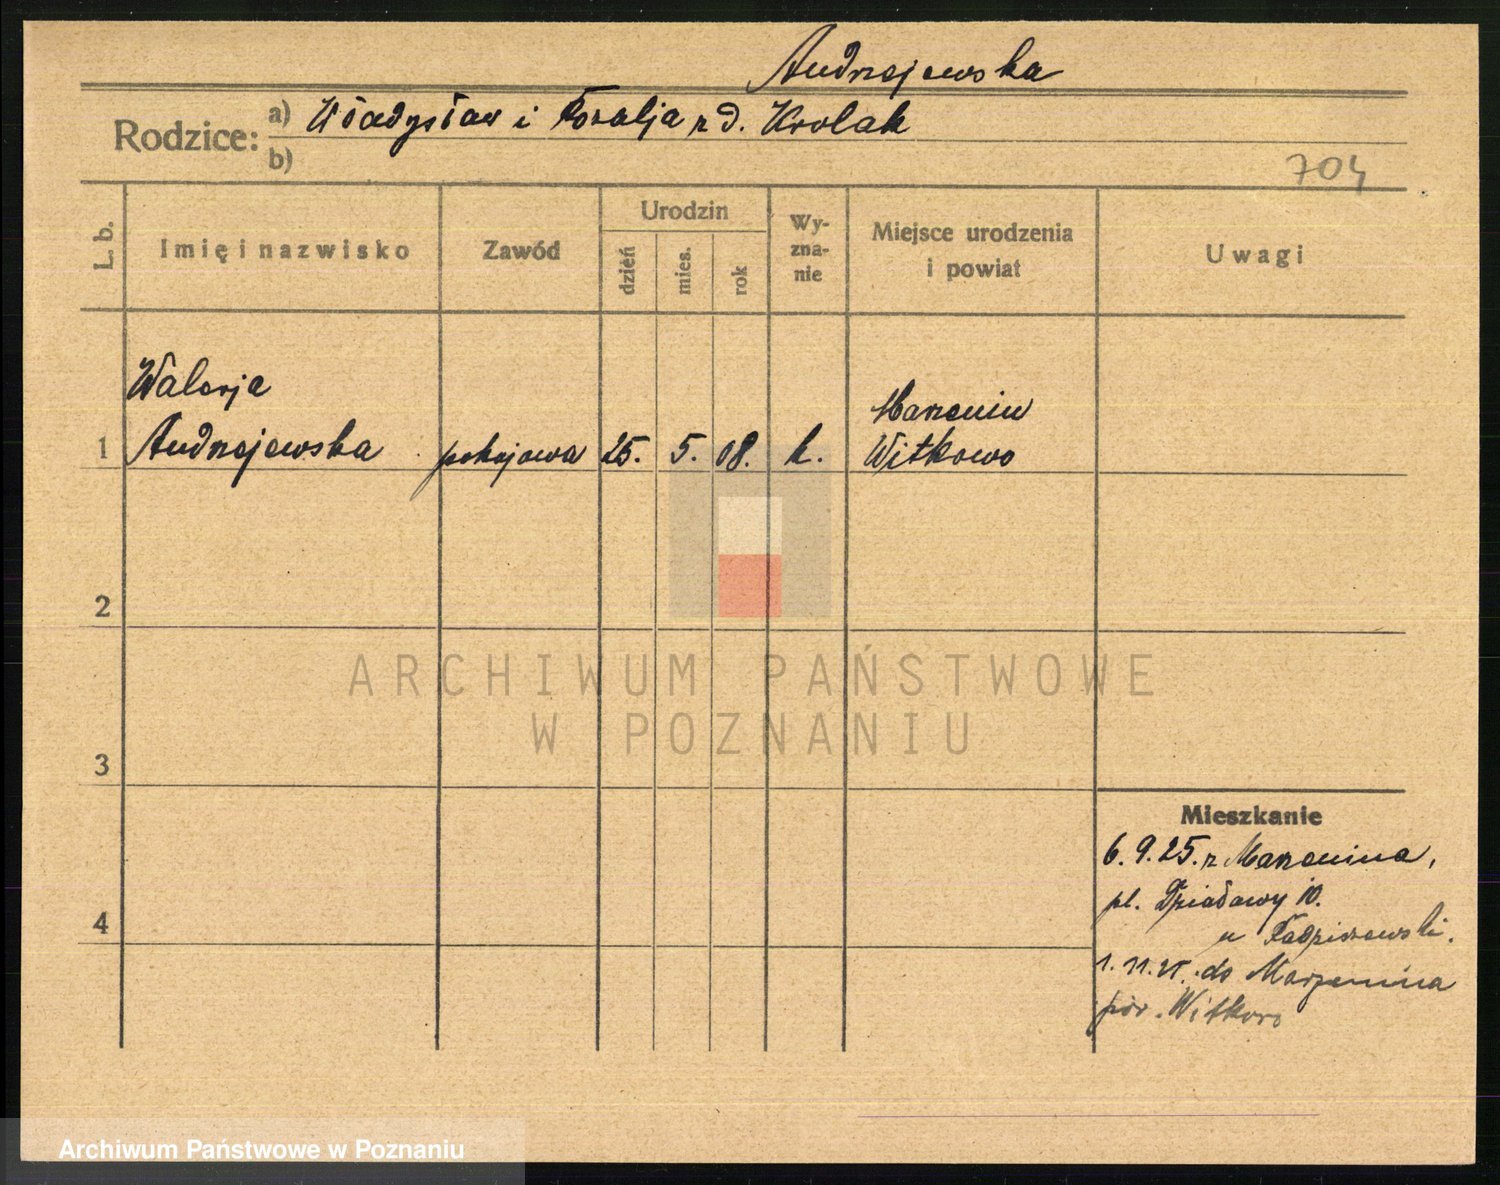 Andrzejewska
Rodzice: a) Władysław i Rozalja z d. Krolak
b)
704
L. b.
Imię i nazwisko
Zawód
Urodzin
dzień
mies.
rok
Wy-
zna-
nie
Miejsce urodzenia
i powiat
Uwagi
Walerja
1 Andrzejewska pokojowa 25. 5. 08. k.
Marzenin
Witkowo
2
3
4
ARCHIWUM PAŃSTWOWE
W POZNANIU
Mieszkanie
6. 9. 25. z Marzenina,
pl. Działowy 10.
u
1. 11. 25. do Marzenina
pow. Witkowo
Archiwum Państwowe w Poznaniu